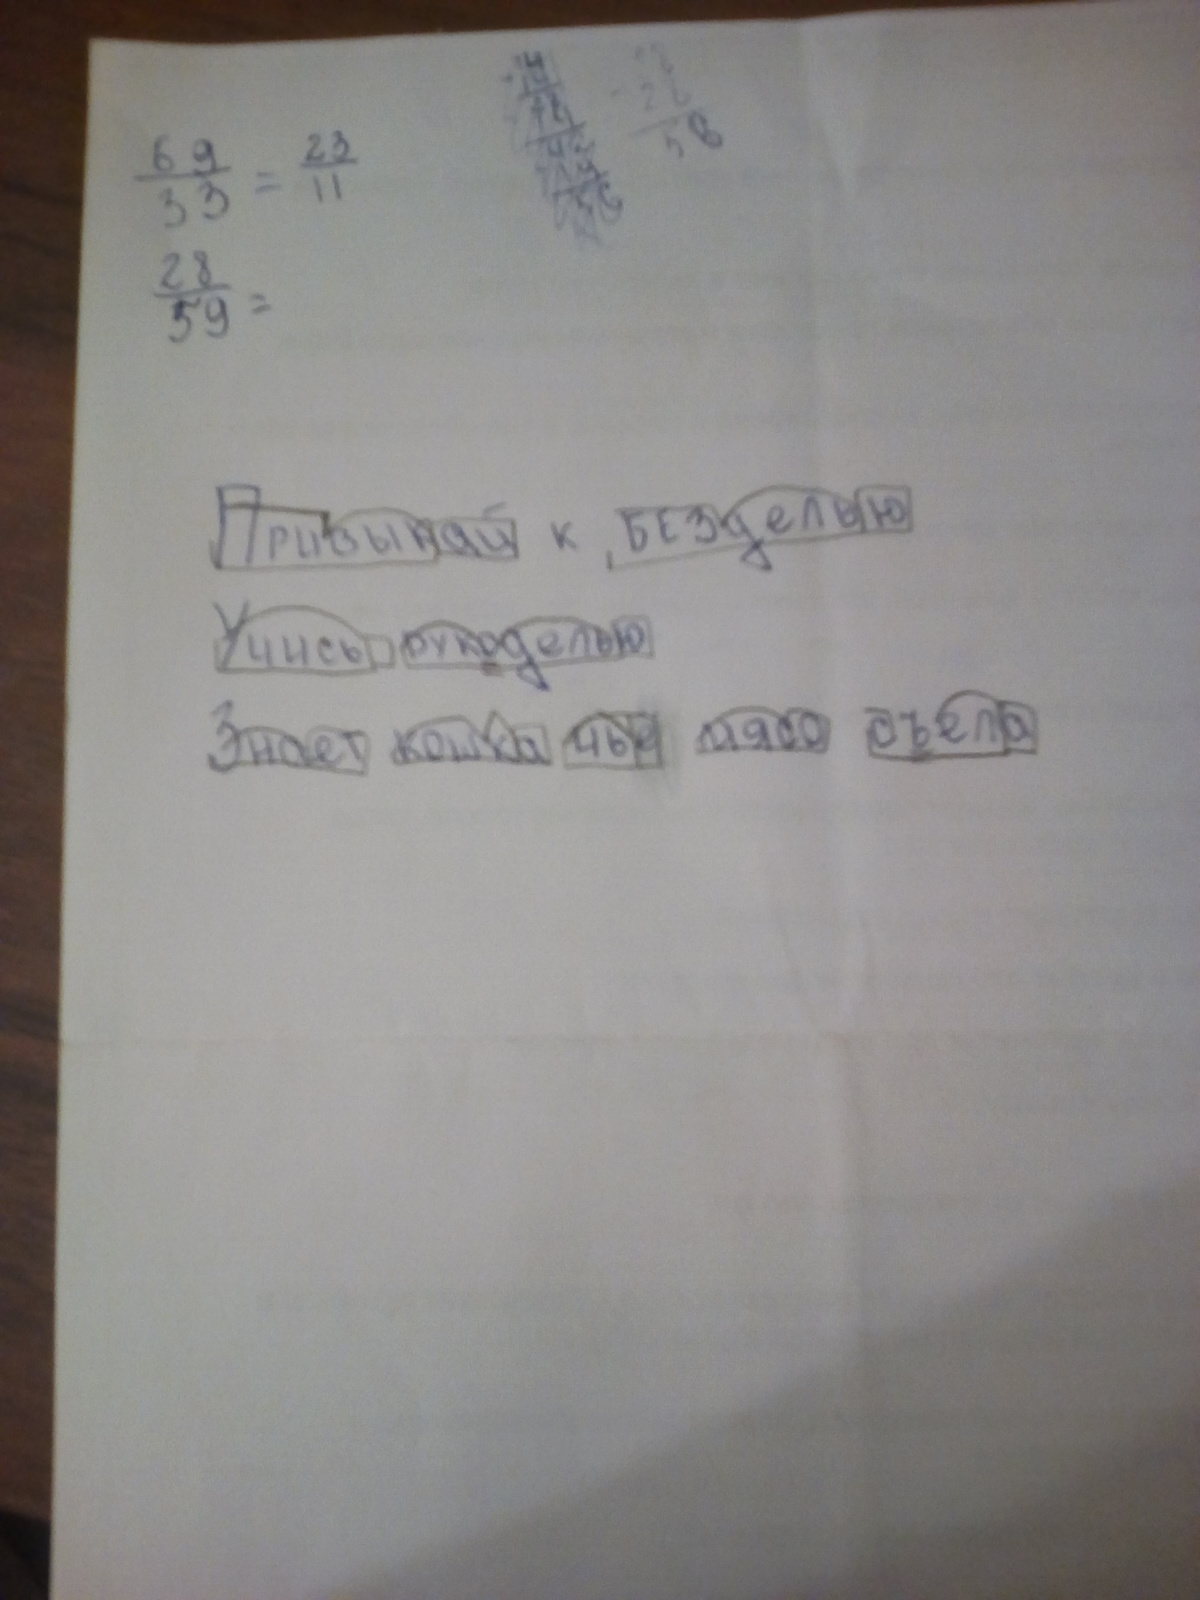 69/33 = 23/11
58
28/59 =
Привыкай к БЕЗделью
Учись рукоделью
Знает кошка чье мясо съела